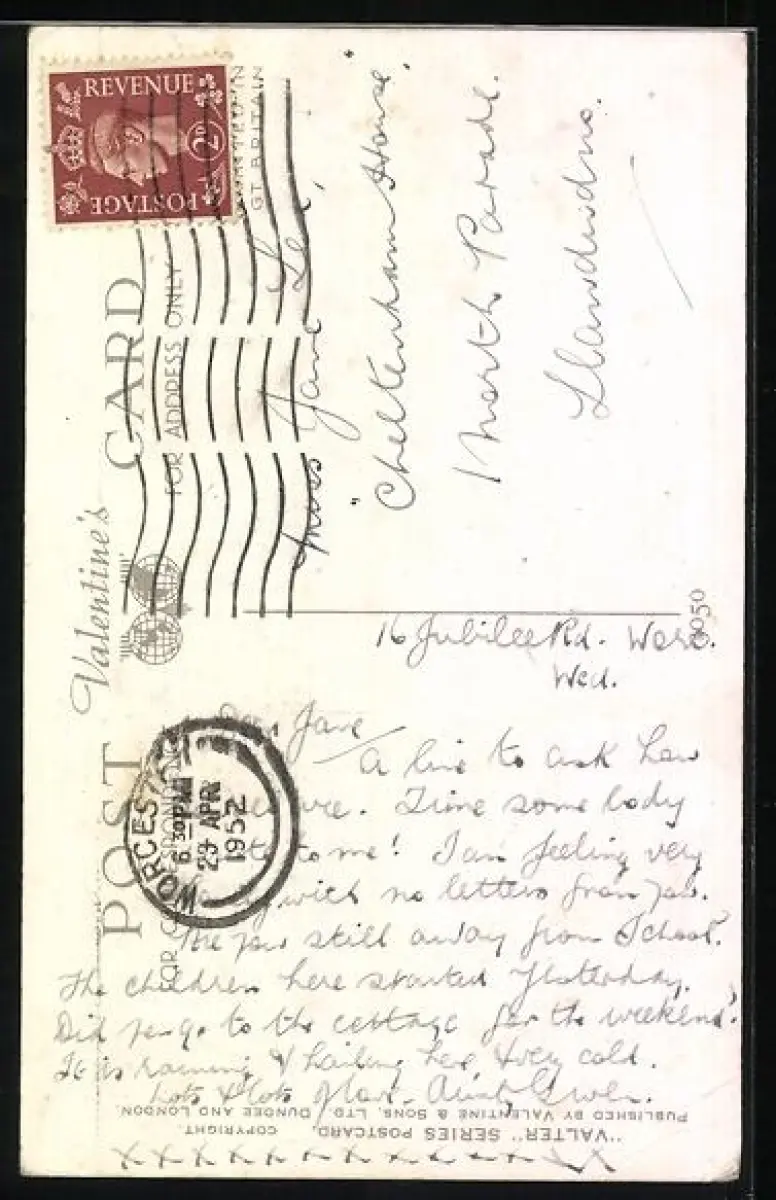 REVENUE
2D
POSTAGE
PRINTED IN
GT BRITAIN
Valentine's
POST CARD
FOR ADDRESS ONLY
FOR
WORCESTER
6 30 PM
23 APR
1952
Miss Jane
"Cheltenham House",
North Parade.
Llandudno.
16 Jubilee Rd. Worc.
Wed.
Dear Jane
A line to ask how
are. Time some body
to me! I am feeling very
with no letters from you.
Are you still away from School?
The children here started yesterday.
Did you go to the cottage for the weekend?
It is raining & hailing here, & very cold.
Lots & lots of love. Aunty Gwen.
x x x x x x x x x x x x x
"VALTER" SERIES POSTCARD, COPYRIGHT.
PUBLISHED BY VALENTINE & SONS, LTD. DUNDEE AND LONDON.